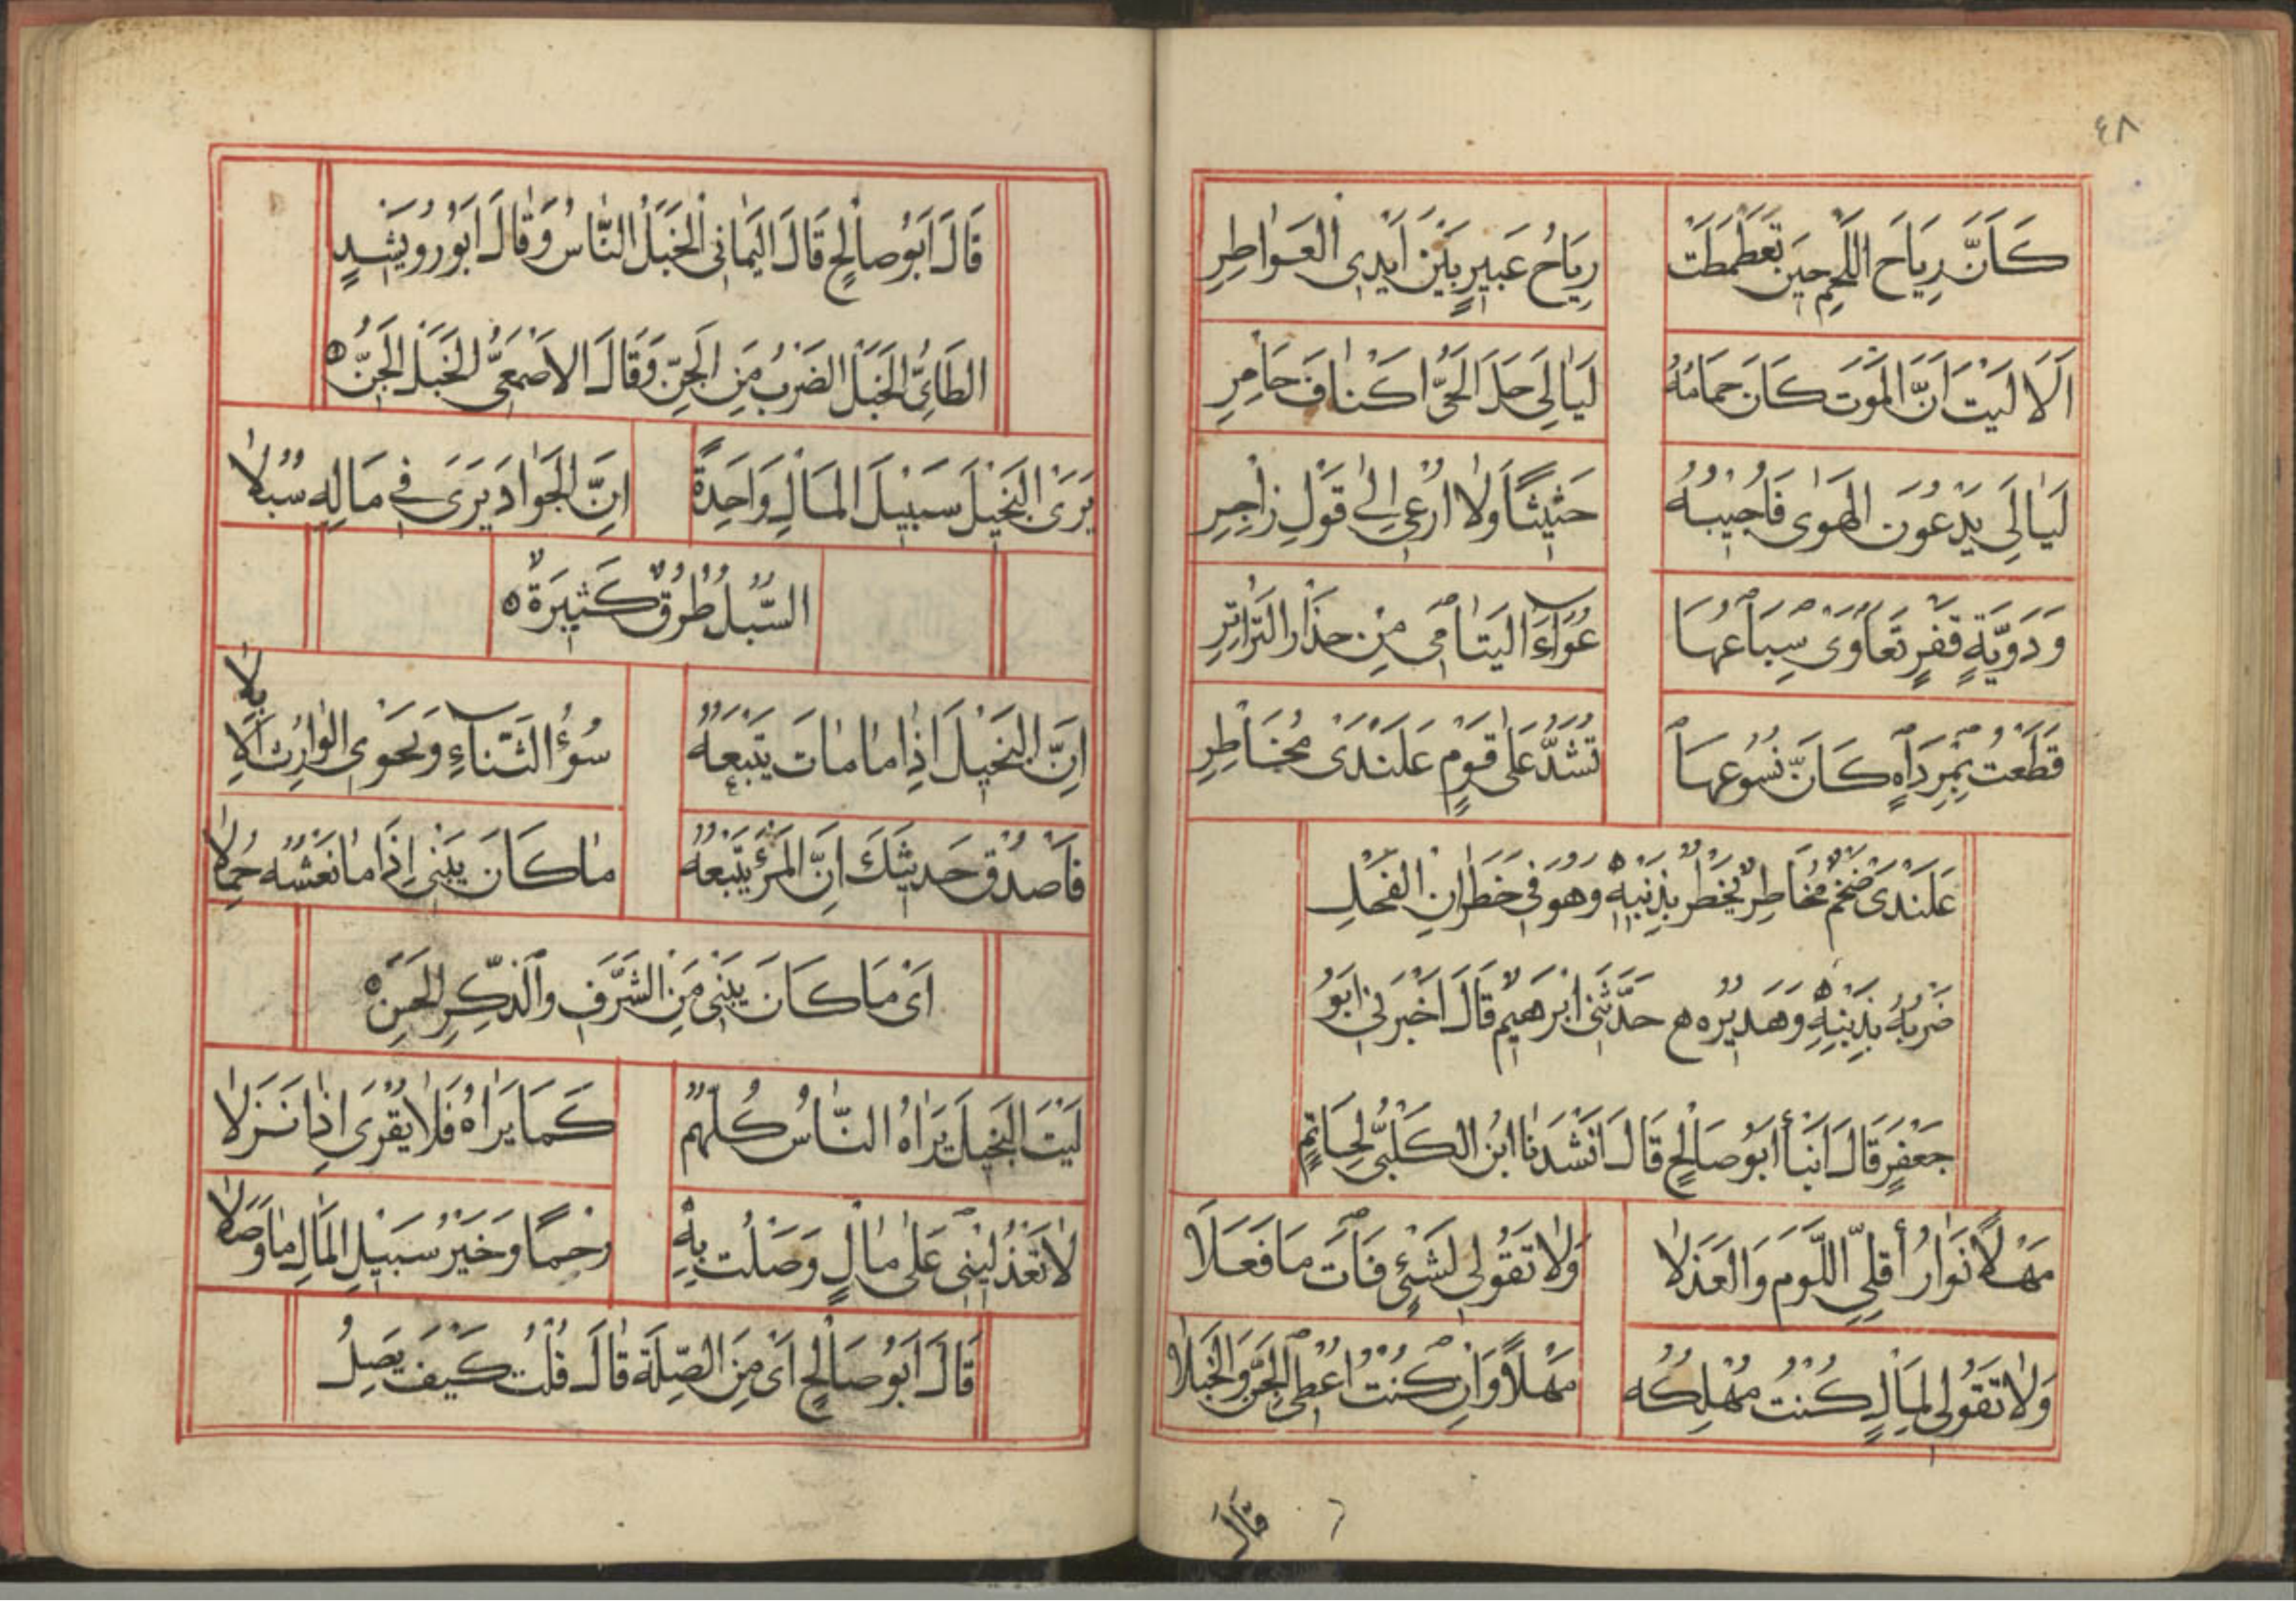 ٤٨
كَاَنَّ رِيَاحَ اللَّحْمِ حِينَ تَغَطْمَطَتْ رِيَاحُ عَبِيرٍ بَيْنَ اَيْدِى الْعَوَاطِرِ
اَلَا لَيْتَ اَنَّ الْمَوْتَ كَانَ حِمَامُهُ لَيَالِىَ حَلَّ الْحَىُّ اَكْنَافَ حَامِرِ
لَيَالِىَ يَدْعُونِ الْهَوَى فَاُجِيبُهُ حَثِيثًا وَلَا اُرْعِى اِلَى قَوْلِ زَاجِرِ
وَدَوِّيَّةٍ قَفْرٍ تَعَاوَى سِبَاعُهَا عُوَاءَ الْيَتَامَى مِنْ حِذَارِ التَّرَاتِرِ
قَطَعْتُ بِمِرْدَاةٍ كَاَنَّ نُسُوعَهَا تُشَدُّ عَلَى قَرْمٍ عَلَنْدَى مُخَاطِرِ
عَلَنْدَى ضَخْمٌ مُخَاطِرٌ يَخْطُرُ بِذَنَبِهِ ه وَهُوَ فِى خَطَرَانِ الْفَحْلِ
ضَرْبُهُ بِذَنَبِهِ وَهَدِيرُهُ ه حَدَّثَنِى اِبْرٰهِيمُ قَالَ اَخْبَرَنِى اَبُو
جَعْفَرٍ قَالَ اَنْبَأَ اَبُو صَالِحٍ قَالَ اَنْشَدَنَا ابْنُ الْكَلْبِىِّ لِحَاتِمٍ
مَهْلًا نَوَارُ أَقِلِّى اللَّوْمَ وَالْعَذَلَا وَلَا تَقُولِى لِشَىْءٍ فَاتَ مَا فَعَلَا
وَلَا تَقُولِى لِمَالٍ كُنْتُ مُهْلِكَهُ مَهْلًا وَاِنْ كُنْتُ اُعْطِى الْجِنَّ وَالْخَبَلَا
قَالَ
قَالَ اَبُو صَالِحٍ قَالَ الْيَمَانِى الْخَبَلُ النَّاسُ وَقَالَ اَبُو رُوَيْشِدٍ
الطَّائِىُّ الْخَبَلُ الضَرْبُ مِنَ الْجِنِّ وَقَالَ الْاَصْمَعِىُّ الْخَبَلُ الْجِنُّ ه
يَرَى الْبَخِيلُ سَبِيلَ الْمَالِ وَاحِدَةً اِنَّ الْجَوَادَ يَرَى فِى مَالِهِ سُبُلَا
السُّبُلُ طُرُقٌ كَثِيرَةٌ ه
اِنَّ الْبَخِيلَ اِذَا مَا مَاتَ يَتْبَعُهُ سُوْءُ الثَّنَاءِ وَيَحْوِى الْوَارِثُ الْاِبِلَا
فَاصْدُقْ حَدِيثَكَ اِنَّ الْمَرْءَ يَتْبَعُهُ مَا كَانَ يَبْنِى اِذَا مَا نَعْشُهُ حُمِلَا
اَىْ مَا كَانَ يَبْنِى مِنَ الشَّرَفِ وَالذِّكْرِ الْحَسَنِ ه
لَيْتَ الْبَخِيلَ يَرَاهُ النَّاسُ كُلُّهُمُ كَمَا يَرَاهُ فَلَا يُقْرَى اِذَا نَزَلَا
لَا تَعْذُلِينِى عَلَى مَالٍ وَصَلْتُ بِهِ رَحِمًا وَخَيْرُ سَبِيلِ الْمَالِ مَا وَصَلَا
قَالَ اَبُو صَالِحٍ اَىْ مِنَ الصِّلَةِ قَالَ قُلْتُ كَيْفَ يَصِلُ